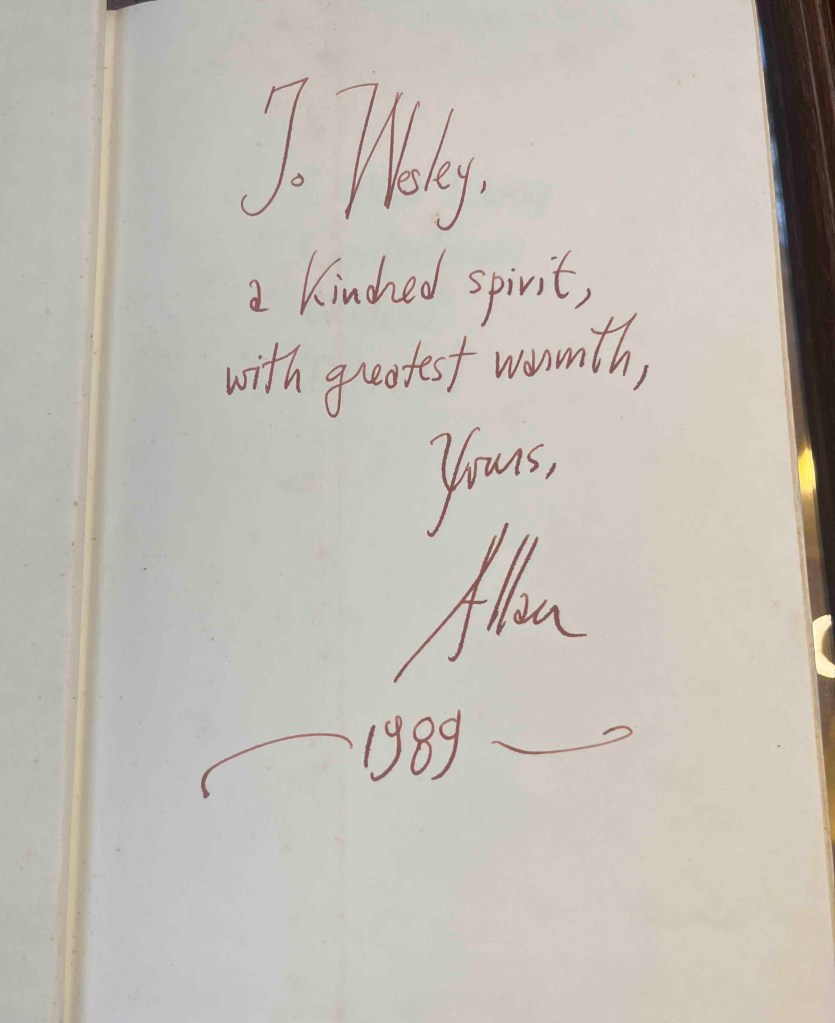 To Wesley,
a kindred spirit,
with greatest warmth,
Yours,
Allan
1989